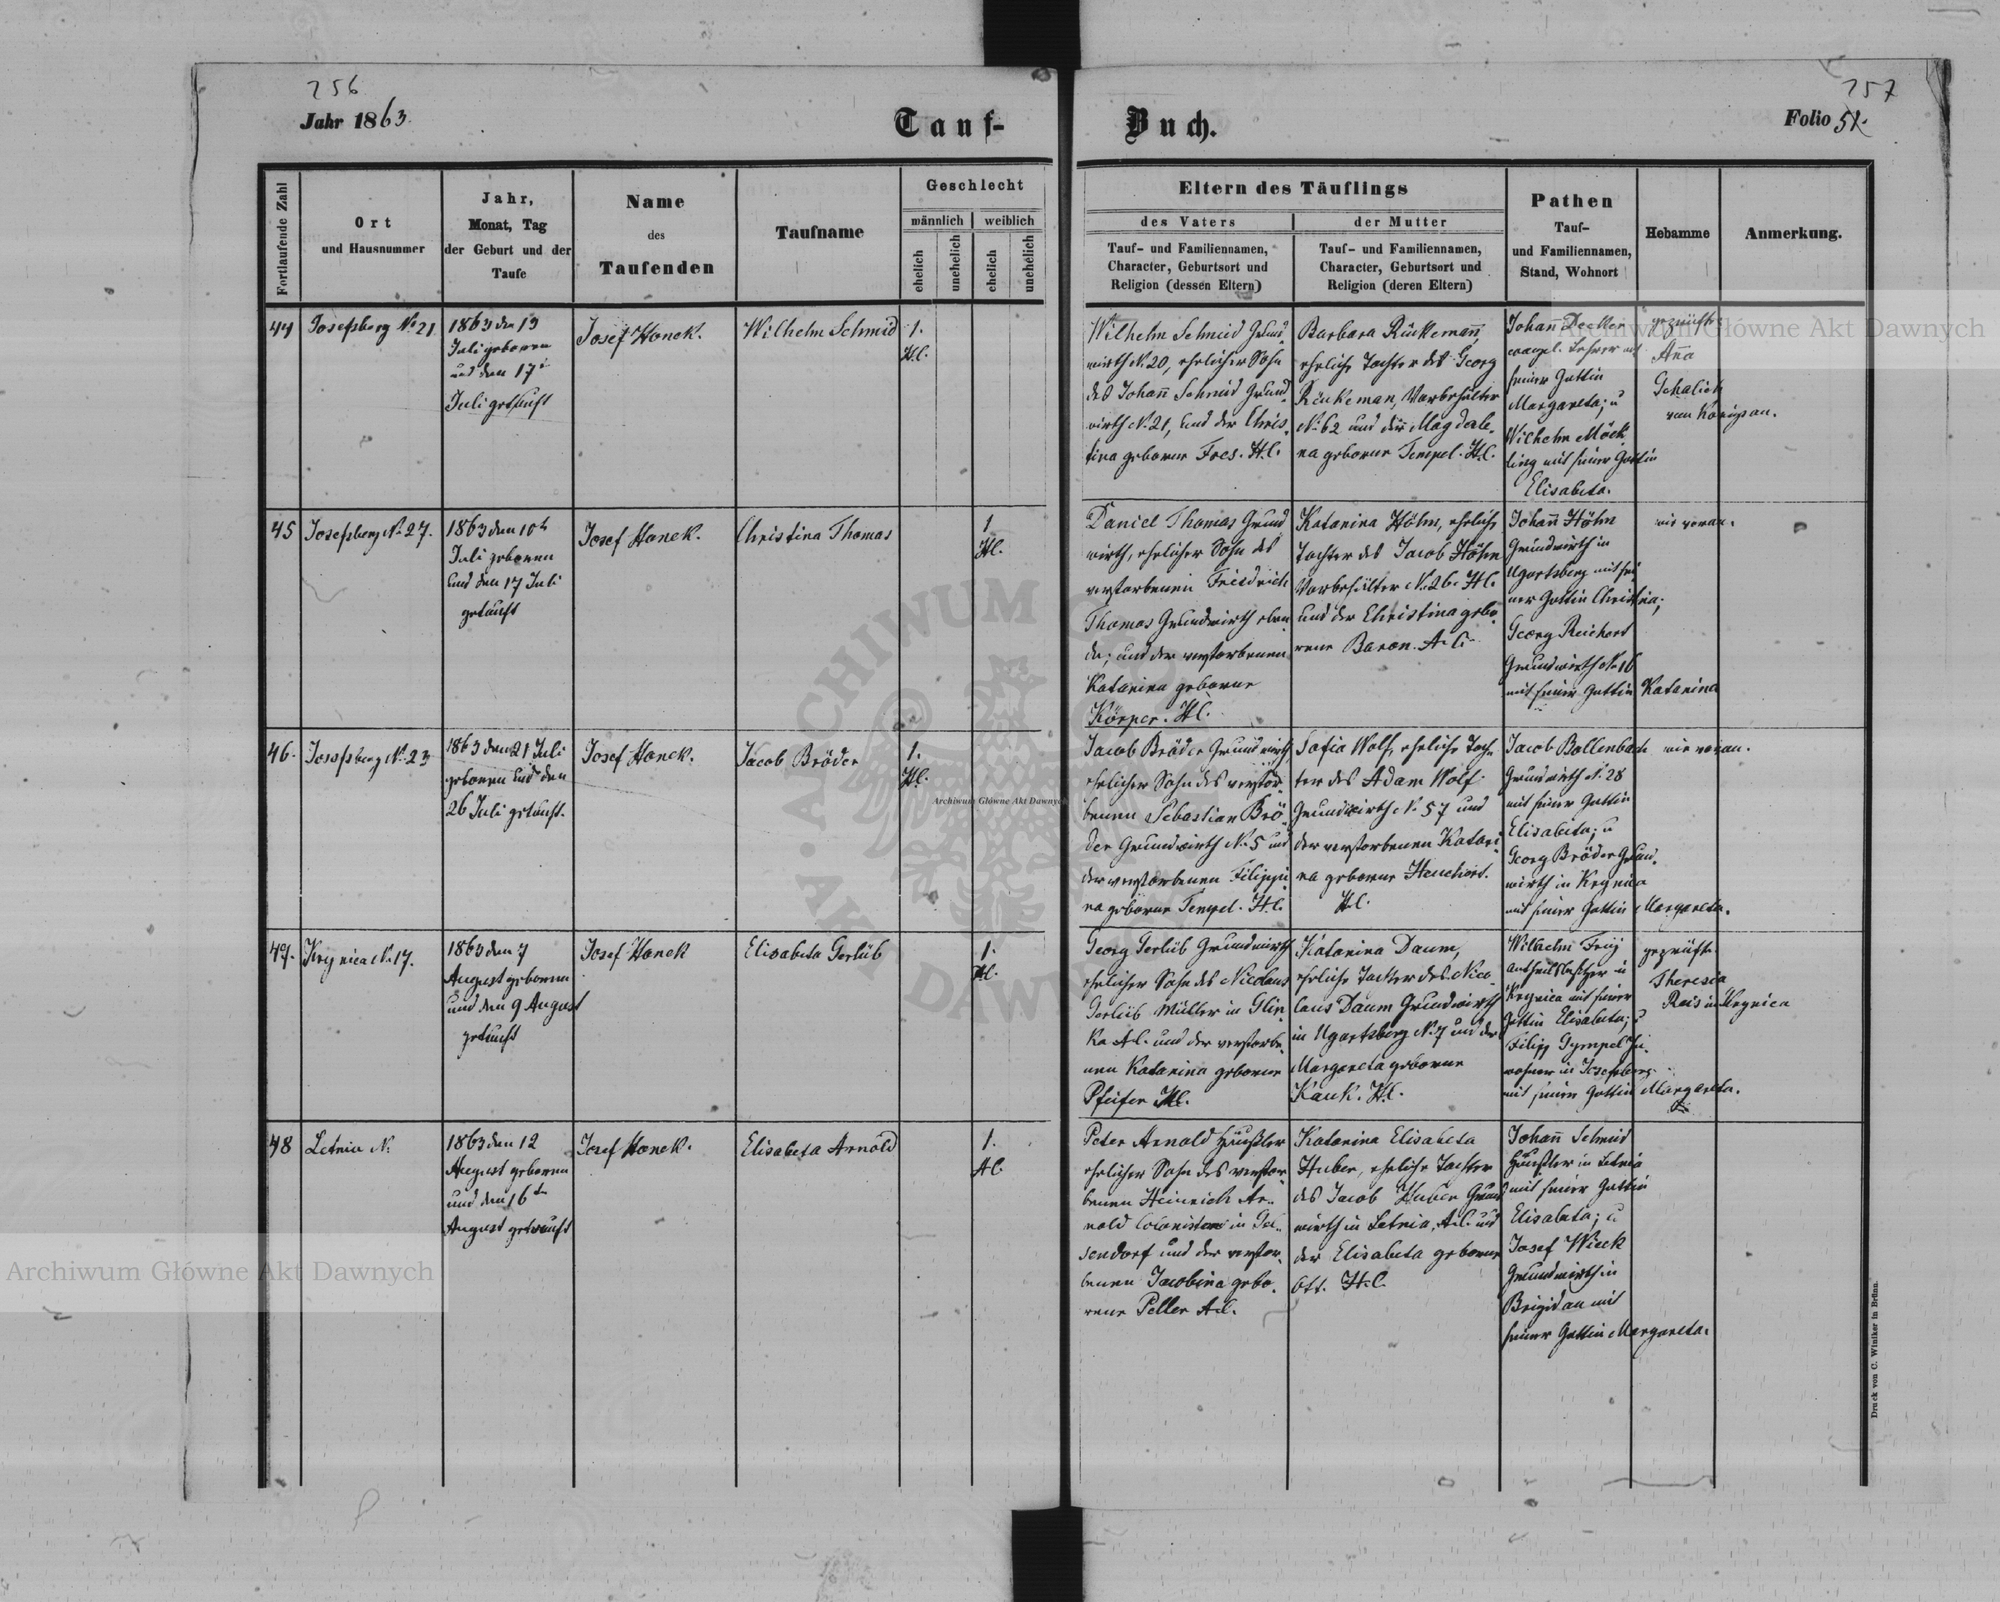 256
257
Jahr 1863.
Tauf-
Buch.
Folio 51.
Fortlaufende Zahl
Ort
und Hausnummer
Jahr,
Monat, Tag
der Geburt und der
Taufe
Name
des
Taufenden
Taufname
Geschlecht
männlich
weiblich
ehelich
unehelich
ehelich
unehelich
Eltern des Täuflings
des Vaters
der Mutter
Tauf- und Familiennamen,
Character, Geburtsort und
Religion (dessen Eltern)
Tauf- und Familiennamen,
Character, Geburtsort und
Religion (deren Eltern)
Pathen
Tauf-
und Familiennamen,
Stand, Wohnort
Hebamme
Anmerkung.
44
Josefsberg No 21
1863 den 13
Juli geboren
und den 17
Juli getauft
Josef Honek.
Wilhelm Schmid
1.
H.C.
Wilhelm Schmid Grund-
wirth N. 20, ehelicher Sohn
des Johann Schmid Grund-
wirth N. 21, und der Chris-
tina geborne Fres. H.C.
Barbara Rinkemann,
eheliche Tochter des Georg
Rinkeman, Vorbehälter
N. 62 und der Magdale-
na geborne Tempel. H.C.
Johann Decker
evangel. Lehrer mit
seiner Gattin
Margareta; u
Wilhelm Möck-
ling mit seiner Gattin
Elisabeta.
geprüfte
Anna
Schalick
von Königsau.
45
Josefsberg N. 27.
1863 den 10
Juli geboren
und den 17 Juli
getauft
Josef Honek.
Christina Thomas
1
H.C.
Daniel Thomas Grund
wirth, ehelicher Sohn des
verstorbenen Friedrich
Thomas Grundwirth eben
da; und der verstorbenen
Katarina geborne
Körper. H.C.
Katarina Höhn, eheliche
Tochter des Jacob Höhn
Vorbehälter N. 26. H.C.
und der Christina gebo-
rene Baron. A.C.
Johann Höhn
Grundwirth in
Ugartsberg mit sei
ner Gattin Christina;
Georg Reichert
Grundwirth N. 16
mit seiner Gattin Katarina
wie voran.
46.
Josefsberg N. 23
1863 den 21 Juli
geboren und den
26 Juli getauft.
Josef Honek.
Jacob Bröder
1.
H.C.
Jacob Bröder Grundwirth
ehelicher Sohn des verstor-
benen Sebastian Brö-
der Grundwirth N. 5 und
der verstorbenen Filippi-
na geborne Tempel. H.C.
Sofia Wolf, eheliche Toch-
ter des Adam Wolf
Grundwirth N. 57 und
der verstorbenen Katari-
na geborne
H.C.
Jacob Bollenbach
Grundwirth N. 28
mit seiner Gattin
Elisabeta; u
Georg Bröder Grund-
wirth in Krynica
mit seiner Gattin Margareta.
wie voran.
47.
Krynica N. 17.
1863 den 7
August geboren
und den 9 August
getauft
Josef Honek
Elisabeta Gerlüb
1.
H.C.
Georg Gerlüb Grundwirth
ehelicher Sohn des Nicolaus
Gerlüb Müller in Glin
ka A.C. und der verstorbe-
nen Katarina geborne
Pfeifer H.C.
Katarina Daum,
eheliche Tochter des Nico-
laus Daum Grundwirth
in Ugartsberg N. 7 und der
Margareta geborne
Kauk. H.C.
Wilhelm Frey
Antheilsbesitzer in
Krynica mit seiner
Gattin Elisabeta; u
Filipp Gympel In-
wohner in Josefsberg
mit seiner Gattin Margareta.
geprüfte
Theresia
Reis in Krynica
48
Letnia N.
1863 den 12
August geboren
und den 16
August getauft
Josef Honek.
Elisabeta Arnold
1.
A.C.
Peter Arnold Häusler
ehelicher Sohn des verstor-
benen Heinrich Ar-
nold Colonisten in Gel-
sendorf und der verstor-
benen Jacobina gebo-
rene Peller A.C.
Katarina Elisabeta
Huber, eheliche Tochter
des Jacob Huber Grund
wirth in Letnia, A.C. und
der Elisabeta geborne
Ott. H.C.
Johann Schmid
Häusler in Letnia
mit seiner Gattin
Elisabeta; u
Josef Wieck
Grundwirth in
Brigidau mit
seiner Gattin Margareta.
Druck von C. Winiker in Brünn.
Archiwum Główne Akt Dawnych
Archiwum Główne Akt Dawnych
Archiwum Główne Akt Dawnych